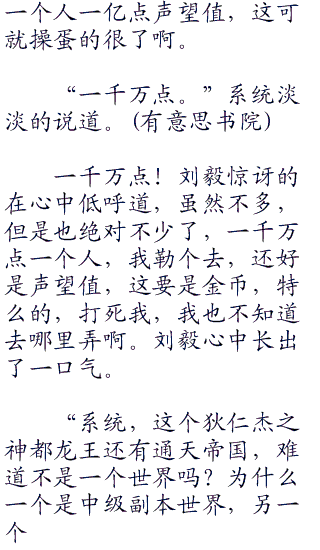 一个人一亿点声望值，这可
就操蛋的很了啊。
“一千万点。”系统淡
淡的说道。(有意思书院)
一千万点！刘毅惊讶的
在心中低呼道，虽然不多，
但是也绝对不少了，一千万
点一个人，我勒个去，还好
是声望值，这要是金币，特
么的，打死我，我也不知道
去哪里弄啊。刘毅心中长出
了一口气。
“系统，这个狄仁杰之
神都龙王还有通天帝国，难
道不是一个世界吗？为什么
一个是中级副本世界，另一
个